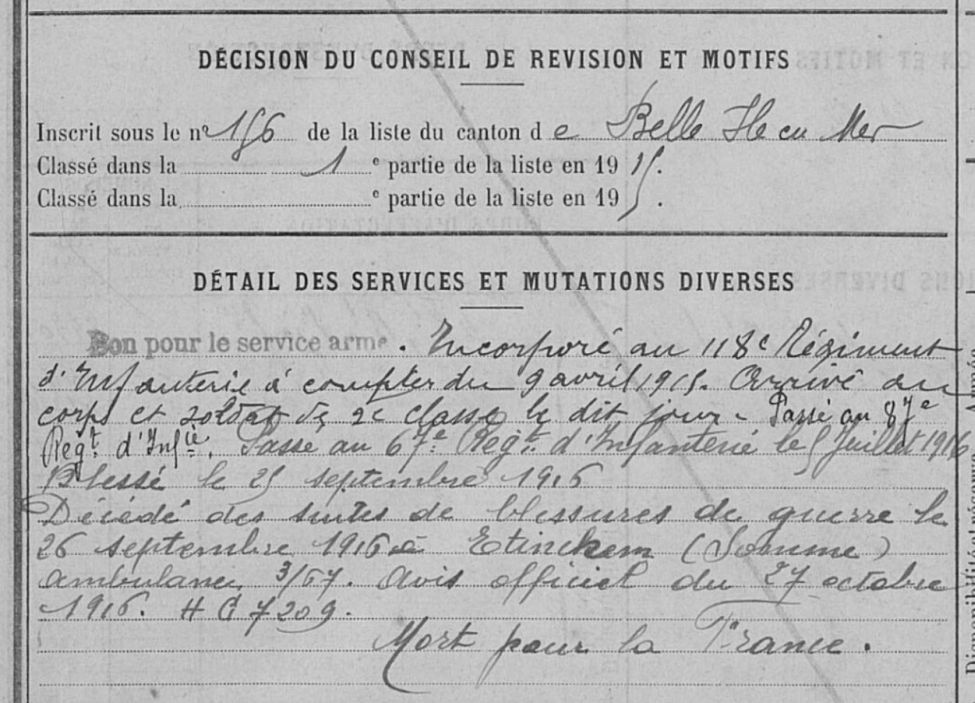 DÉCISION DU CONSEIL DE REVISION ET MOTIFS
Inscrit sous le nº 156 de la liste du canton de Belle Ile en Mer
Classé dans la 1e partie de la liste en 1915.
Classé dans la e partie de la liste en 19 .
DÉTAIL DES SERVICES ET MUTATIONS DIVERSES
Bon pour le service armé. Incorporé au 118e Régiment
d'Infanterie à compter du 9 avril 1915. Arrivé au
corps et soldat de 2e classe le dit jour - Passé au 87e
Régt d'Infie. Passé au 67e Régt d'Infanterie le 5 Juillet 1916
Blessé le 25 septembre 1916
Décédé des suites de blessures de guerre le
26 septembre 1916 à Etinehem (Somme)
ambulance 3/67. Avis officiel du 27 octobre
1916. 7209.
Mort pour la France.